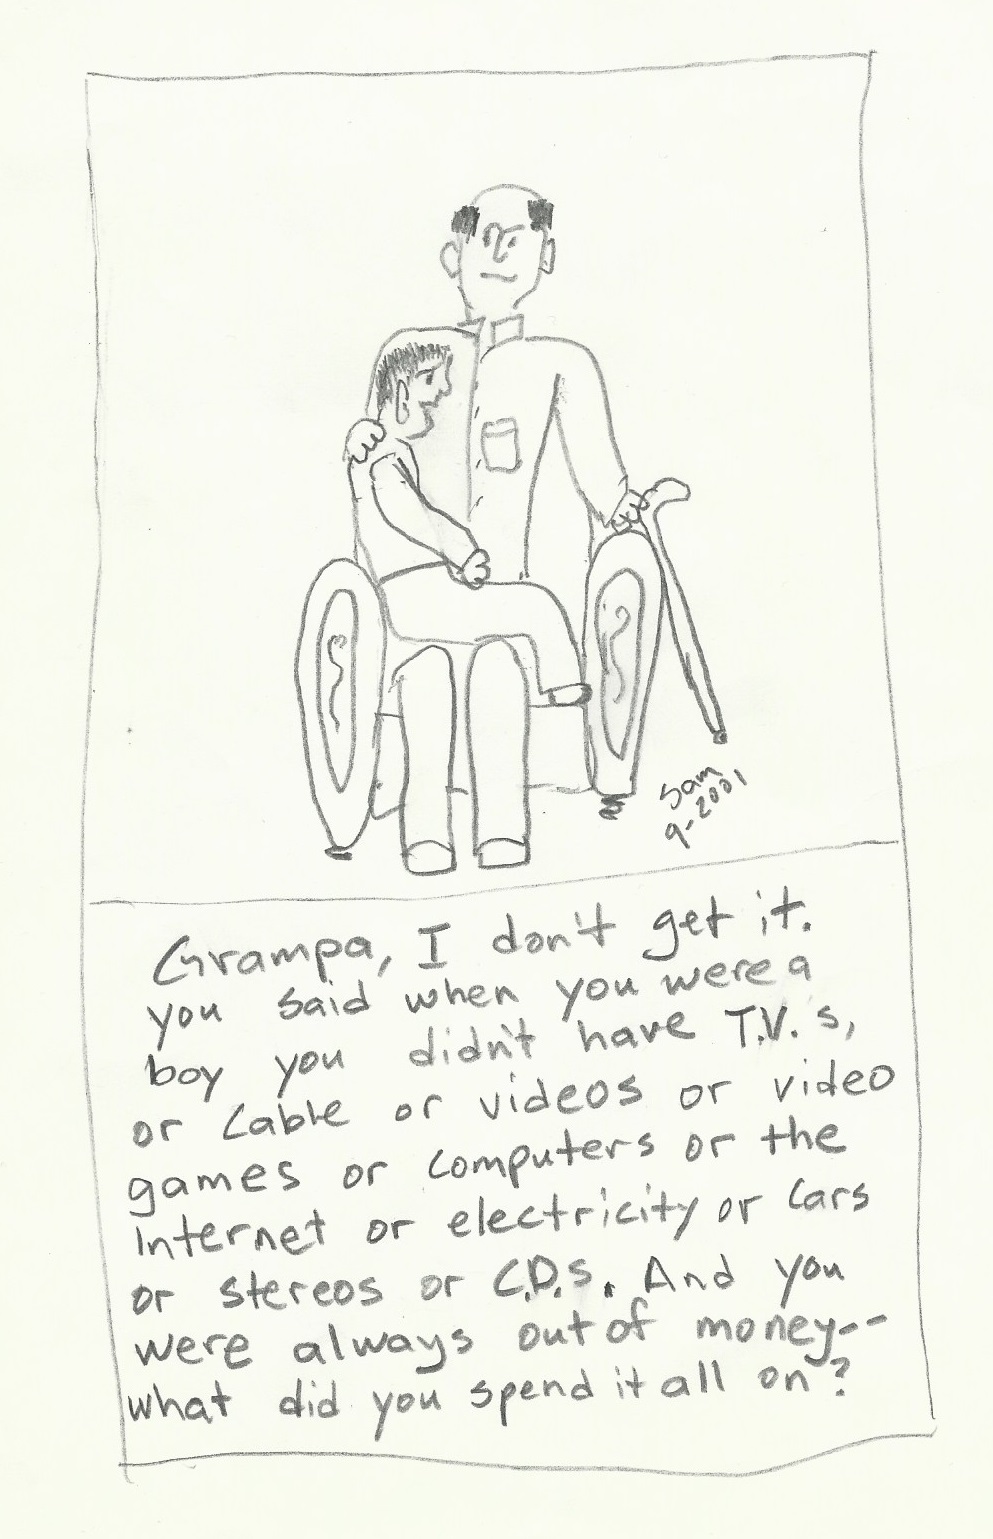 Sam
9-2001
Grampa, I don't get it.
you said when you were a
boy you didn't have T.V.'s,
or cable or videos or video
games or computers or the
Internet or electricity or cars
or stereos or C.D.s. And you
were always out of money--
what did you spend it all on?